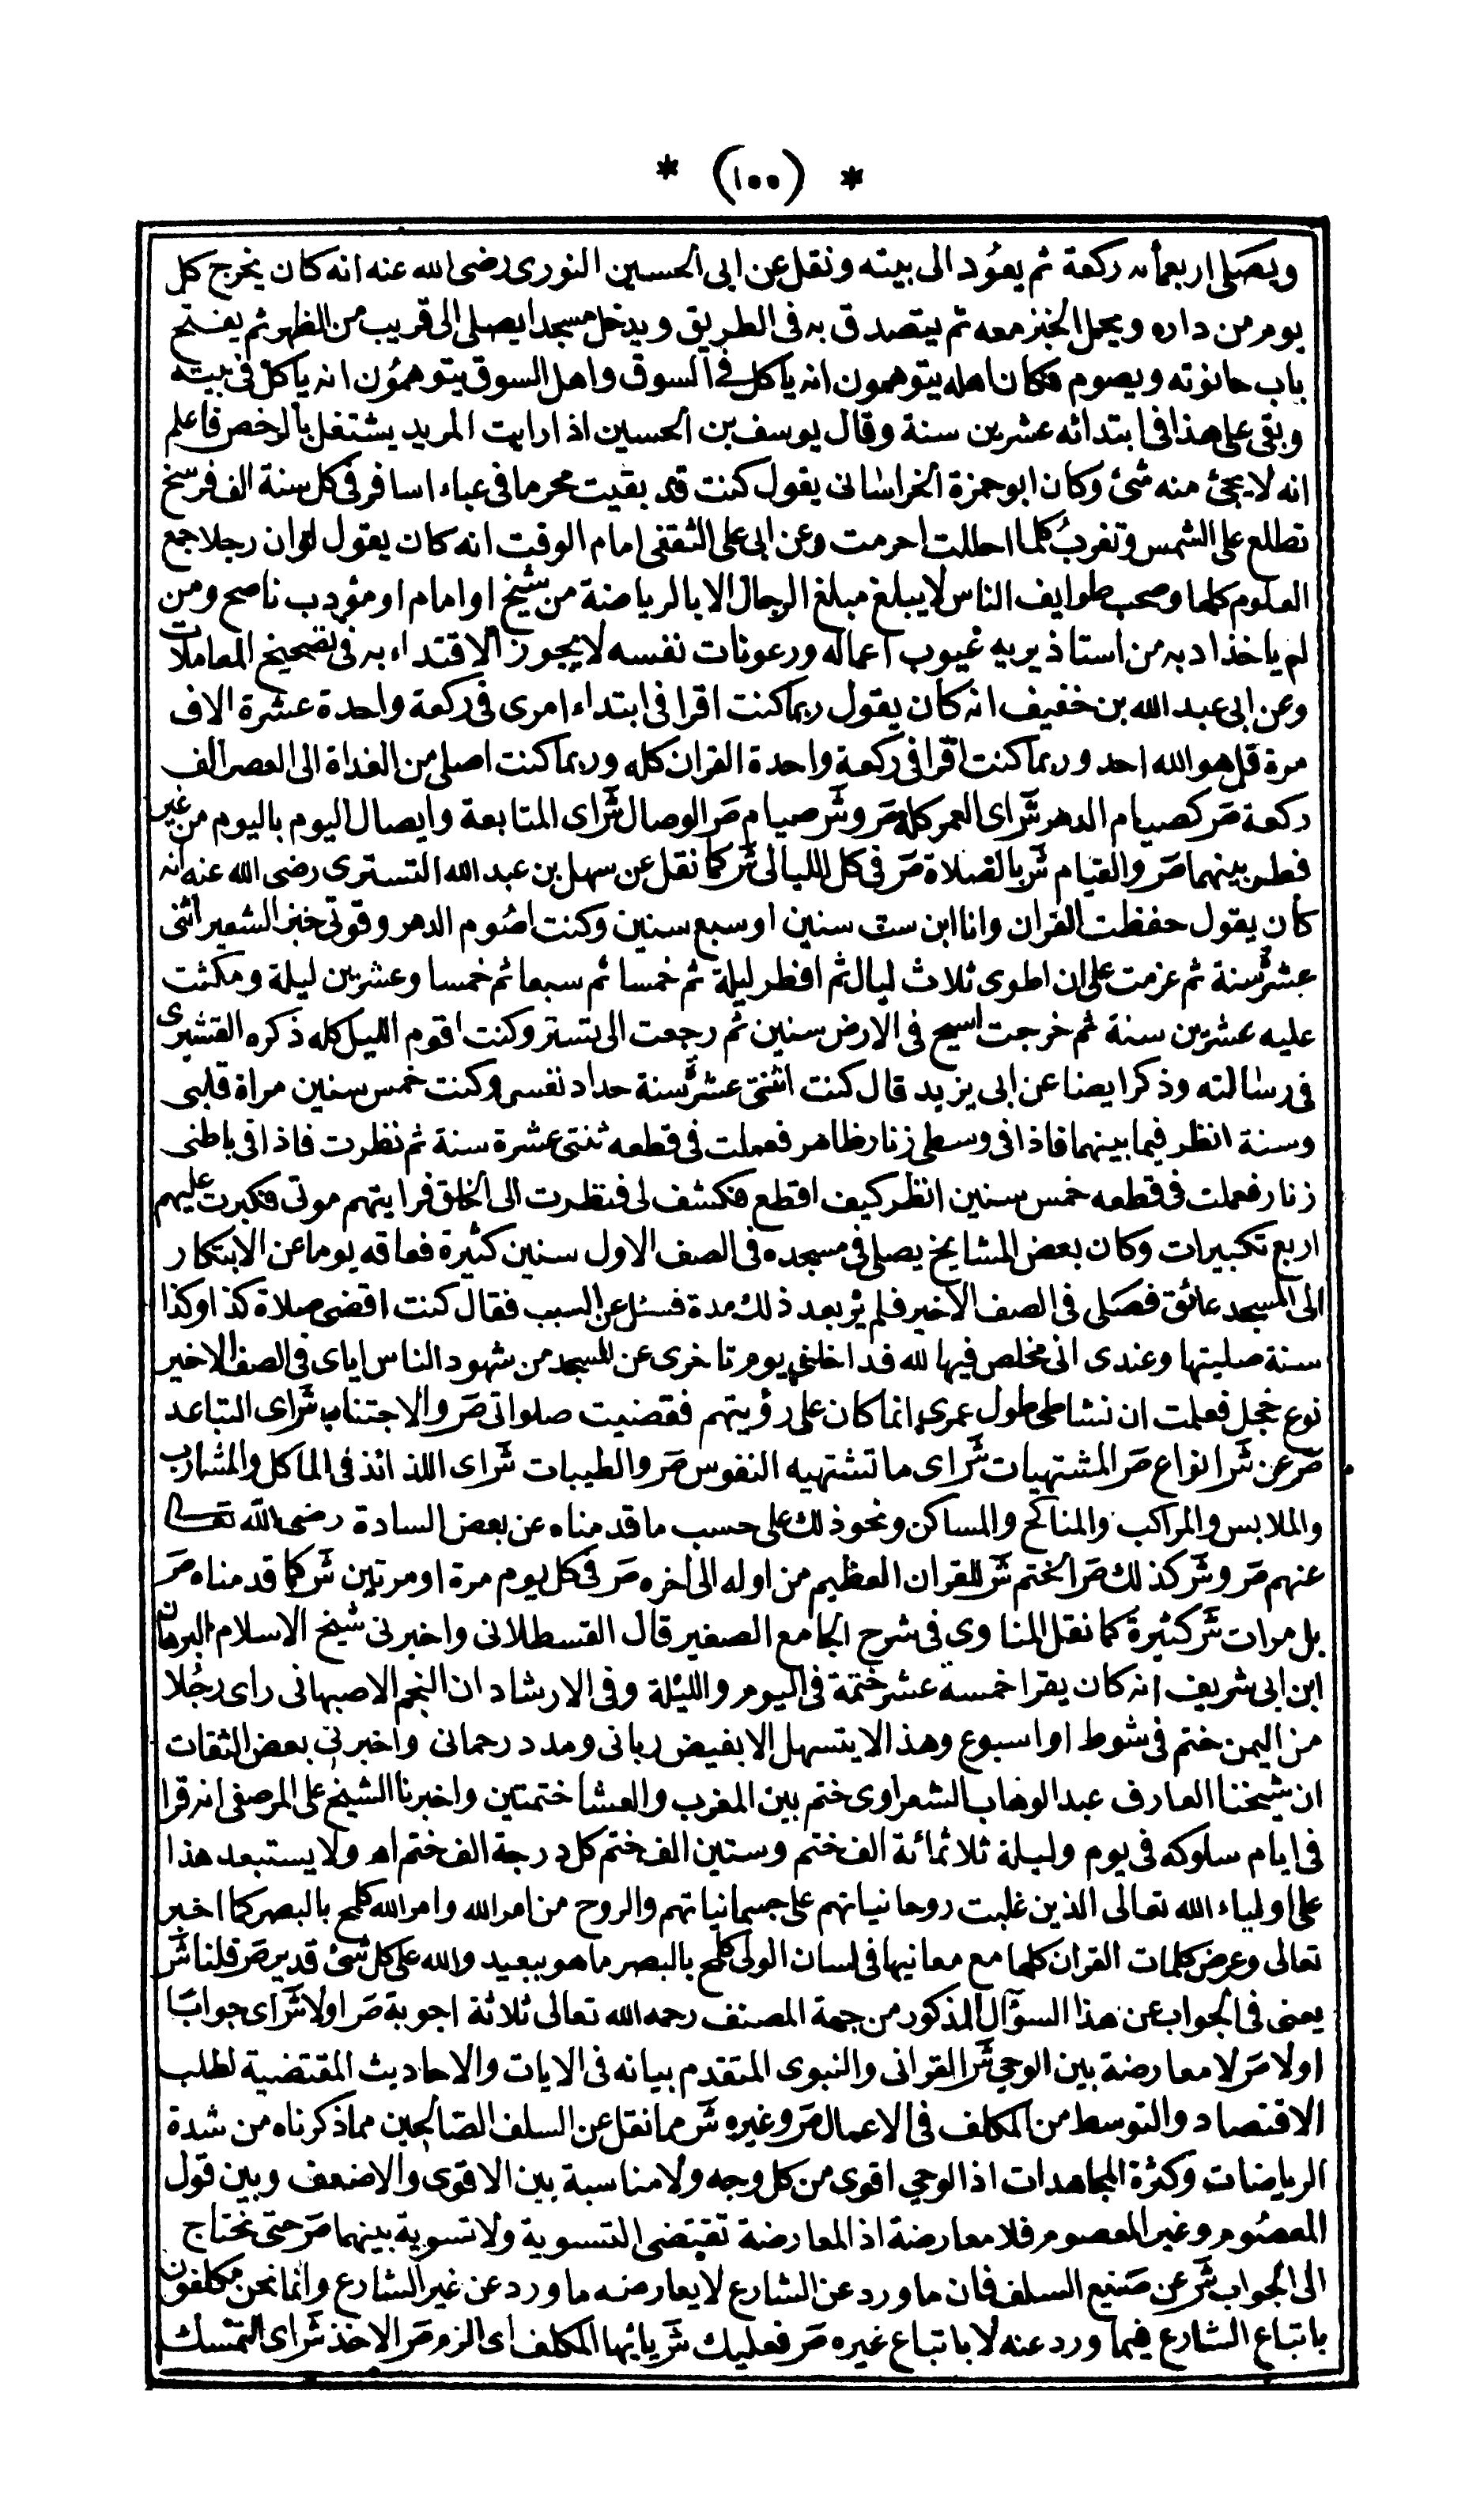 * (١٠٠) *
ويصلى اربعمأنه ركعة ثم يعود الى بيته ونقل عن ابى الحسين النورى رضى الله عنه انه كان يخرج كل
يوم من داره ويحمل الخبز معه ثم يتصدق به فى الطريق ويدخل مسجدا يصلى الى قريب من الظهر ثم يفتح
باب حانوته ويصوم فكان اهله يتوهمون انه ياكل فى السوق واهل السوق يتوهمون انه ياكل فى بيته
وبقى على هذا فى ابتدائه عشرين سنة وقال يوسف بن الحسين اذا رايت المريد يشتغل بالرخص فاعلم
انه لا يجئ منه شئ وكان ابو حمزة الخراسانى يقول كنت قد بقيت محرما فى عباء اسافر فى كل سنة الف فرسخ
تطلع على الشمس وتغرب كلما احللت احرمت وعن ابى على الثقفى امام الوقت انه كان يقول لو ان رجلا جمع
العلوم كلها وصحب طوايف الناس لا يبلغ مبلغ الرجال الا بالرياضة من شيخ او امام او مؤدب ناصح ومن
لم ياخذ ادبه من استاذ يريه عيوب اعماله ورعونات نفسه لا يجوز الاقتداء به فى تصحيح المعاملات
وعن ابى عبد الله بن خفيف انه كان يقول ربما كنت اقرا فى ابتداء امرى فى ركعة واحدة عشرة الاف
مرة قل هو الله احد وربما كنت اقرا فى ركعة واحدة القران كله وربما كنت اصلى من الغداة الى العصر الف
ركعة صَر كصيام الدهر شَر اى العمر كله صَر و شَر صيام صَر الوصال شَر اى المتابعة وايصال اليوم باليوم من غير
فطر بينهما صَر والقيام شَر بالصلاة صَر فى كل الليالى شَر كما نقل عن سهل بن عبد الله التسترى رضى الله عنه انه
كان يقول حفظت القران وانا ابن ست سنين او سبع سنين وكنت اصوم الدهر وقوتى خبز الشعير اثنى
عشر سنة ثم عزمت على ان اطوى ثلاث ليال ثم افطر ليلة ثم خمسا ثم سبعا ثم خمسا وعشرين ليلة ومكثت
عليه عشرين سنة ثم خرجت اسيح فى الارض سنين ثم رجعت الى تستر وكنت اقوم الليل كله ذكره القشيرى
فى رسالته وذكر ايضا عن ابى يزيد قال كنت اثنتى عشر سنة حداد نفسى وكنت خمس سنين مراة قلبى
وسنة انظر فيما بينهما فاذا فى وسطى زنار ظاهر فعملت فى قطعه ثنتى عشرة سنة ثم نظرت فاذا فى باطنى
زنار فعملت فى قطعه خمس سنين انظر كيف اقطع فكشف لى فنظرت الى الخلق فرايتهم موتى فكبرت عليهم
اربع تكبيرات وكان بعض المشايخ يصلى فى مسجده فى الصف الاول سنين كثيرة فعاقه يوما عن الابتكار
الى المسجد عائق فصلى فى الصف الاخير فلم ير بعد ذلك مدة فسئل عن السبب فقال كنت اقضى صلاة كذا وكذا
سنة صليتها وعندى انى مخلص فيها لله فداخلنى يوم تاخرى عن المسجد من شهود الناس اياى فى الصف الاخير
نوع خجل فعلمت ان نشاطى طول عمرى انما كان على رؤيتهم فقضيت صلواتى صَر والاجتناب شَر اى التباعد
صَر عن شَر انواع صَر المشتهيات شَر اى ما تشتهيه النفوس صَر والطيبات شَر اى اللذائذ فى الماكل والمشارب
والملابس والمراكب والمناكح والمساكن ونحو ذلك على حسب ما قدمناه عن بعض السادة رضى الله تعالى
عنهم صَر و شَر كذلك صَر الختم شَر للقران العظيم من اوله الى اخره صَر فى كل يوم مرة او مرتين شَر كما قدمناه صَر
بل مرات شَر كثيرة كما نقل المناوى فى شرح الجامع الصغير قال القسطلانى واخبرنى شيخ الاسلام البرهان
ابن ابى شريف انه كان يقرا خمسة عشر ختمة فى اليوم والليلة وفى الارشاد ان النجم الاصبهانى راى رجلا
من اليمن ختم فى شوط او اسبوع وهذا لا يتسهل الا بفيض ربانى ومدد رحمانى واخبرنى بعض الثقات
ان شيخنا العارف عبد الوهاب الشعراوى ختم بين المغرب والعشا ختمتين واخبرنا الشيخ على المرصفى انه قرا
فى ايام سلوكه فى يوم وليلة ثلاثمائة الف ختم وستين الف ختم كل درجة الف ختم اه ولا يستبعد هذا
على اولياء الله تعالى الذين غلبت روحانياتهم على جسمانياتهم والروح من امر الله وامر الله كلمح بالبصر كما اخبر
تعالى وعرض كلمات القران كلها مع معانيها فى لسان الولى كلمح بالبصر ما هو ببعيد والله على كل شئ قدير صَر قلنا شَر
يعنى فى الجواب عن هذا السؤال المذكور من جهة المصنف رحمه الله تعالى ثلاثة اجوبة صَر اولا شَر اى جوابا
اولا صَر لا معارضة بين الوحى شَر القرانى والنبوى المتقدم بيانه فى الايات والاحاديث المقتضية لطلب
الاقتصاد والتوسط من المكلف فى الاعمال صَر وغيره شَر مما نقل عن السلف الصالحين مما ذكرناه من شدة
الرياضات وكثرة المجاهدات اذ الوحى اقوى من كل وجه ولا مناسبة بين الاقوى والاضعف وبين قول
المعصوم وغير المعصوم فلا معارضة اذ المعارضة تقتضى التسوية ولا تسوية بينهما صَر حتى نحتاج
الى الجواب شَر عن صنيع السلف فان ما ورد عن الشارع لا يعارضه ما ورد عن غير الشارع وانما نحن مكلفون
باتباع الشارع فيما ورد عنه لا باتباع غيره صَر فعليك شَر يا ايها المكلف اى الزم صَر الاخذ شَر اى التمسك